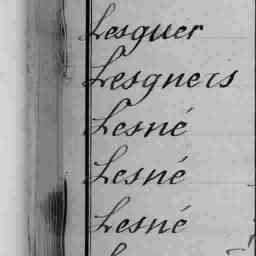 Lesguer
Lesgueis
Lesné
Lesné
Lesné